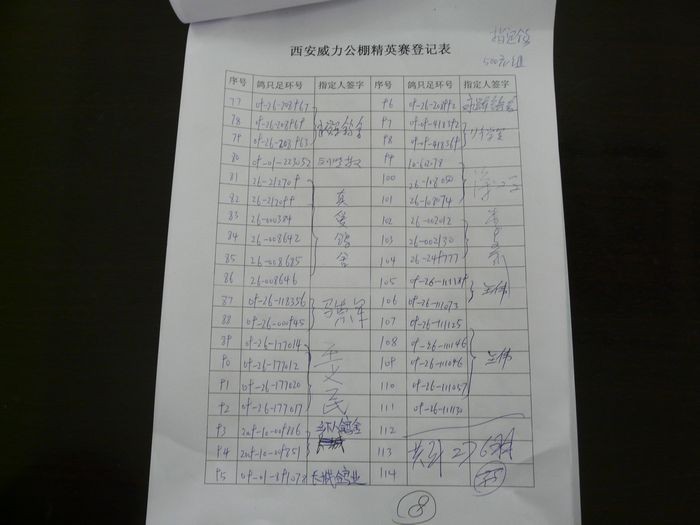 指定鸽
500元组
西安威力公棚精英赛登记表
序号 鸽只足环号 指定人签字 序号 鸽只足环号 指定人签字
77 09-26-208967 96 09-26-208992
78 09-26-208969 97 09-09-418392
79 09-26-208963 98 09-09-418369
80 09-01-223052 99 10-62078
81 26-212709 100 26-108050
82 26-212099 真 101 26-108074
83 26-000384 爱 102 26-002012 李
84 26-008642 鸽 103 26-002130
85 26-008685 舍 104 26-249777
86 26-008646 105 09-26-111189 兰伟
87 09-26-118356 106 09-26-111073
88 09-26-000945 107 09-26-111125
89 09-26-177014 王 108 09-26-111146
90 09-26-177012 义 109 09-26-111096 兰伟
91 09-26-177020 民 110 09-26-111057
92 09-26-177017 111 09-26-111130
93 2009-10-009886 112
94 2009-10-009851 113 共计276羽
95 09-01-891078 长城鸽业 114
8